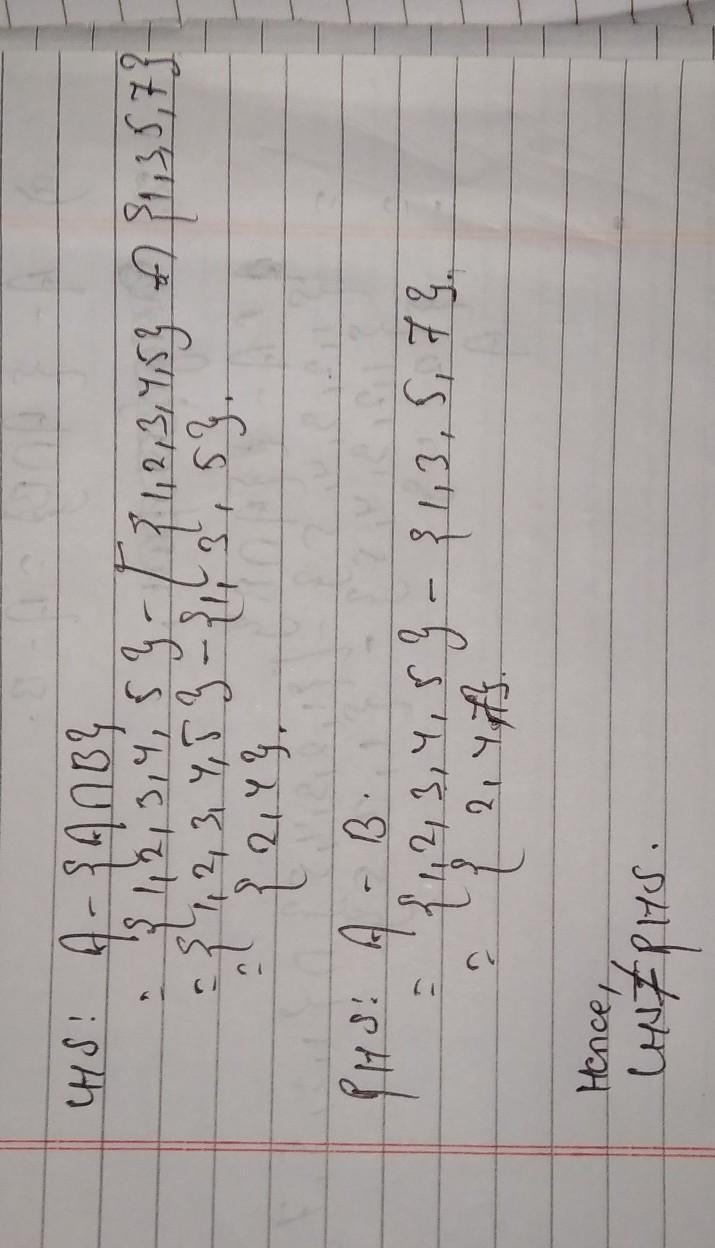 LHS: A - {A∩B}
= {1,2,3,4,5} - [{1,2,3,4,5} ∩ {1,3,5,7}
= {1,2,3,4,5} - {1,3,5}.
= {2,4}.
RHS: A - B.
= {1,2,3,4,5} - {1,3,5,7}.
= {2,4}.
Hence,
LHS ≠ RHS.